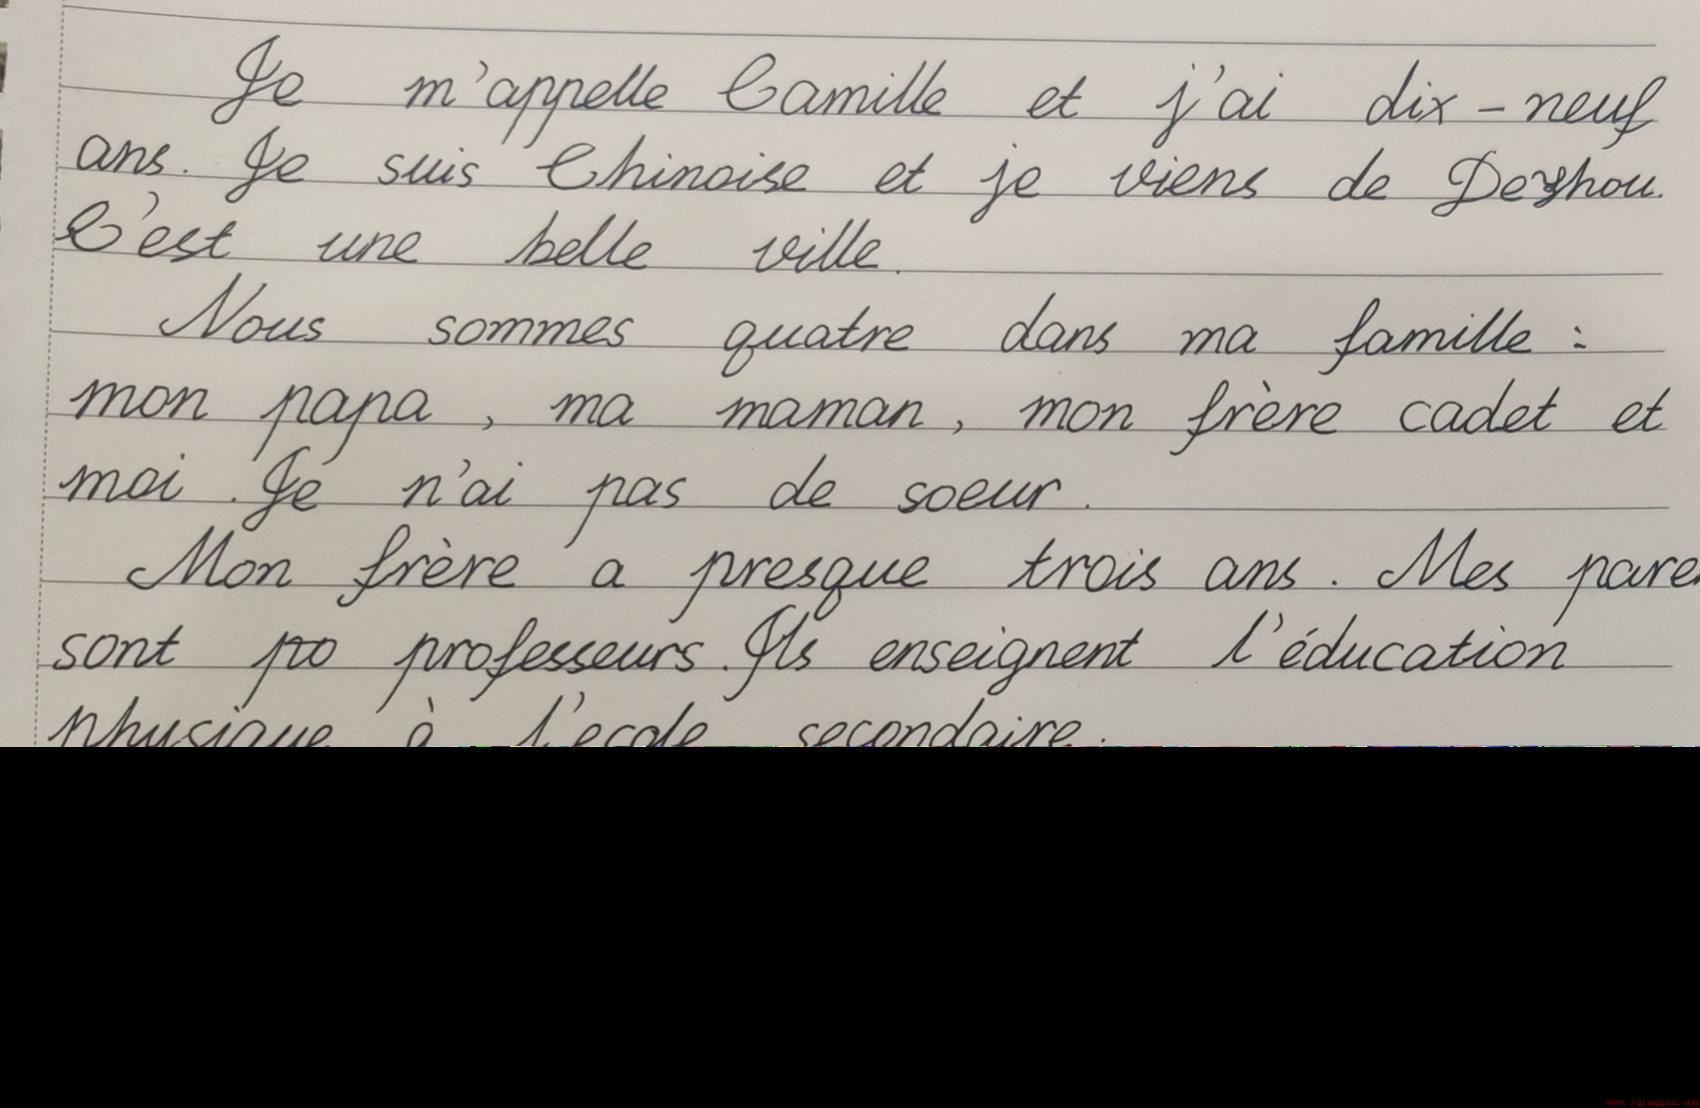 Je m'appelle Camille et j'ai dix-neuf
ans. Je suis Chinoise et je viens de Dezhou.
C'est une belle ville.
Nous sommes quatre dans ma famille :
mon papa, ma maman, mon frère cadet et
moi. Je n'ai pas de soeur.
Mon frère a presque trois ans. Mes pare
sont pro professeurs. Ils enseignent l'éducation
physique à l'ecole secondaire.